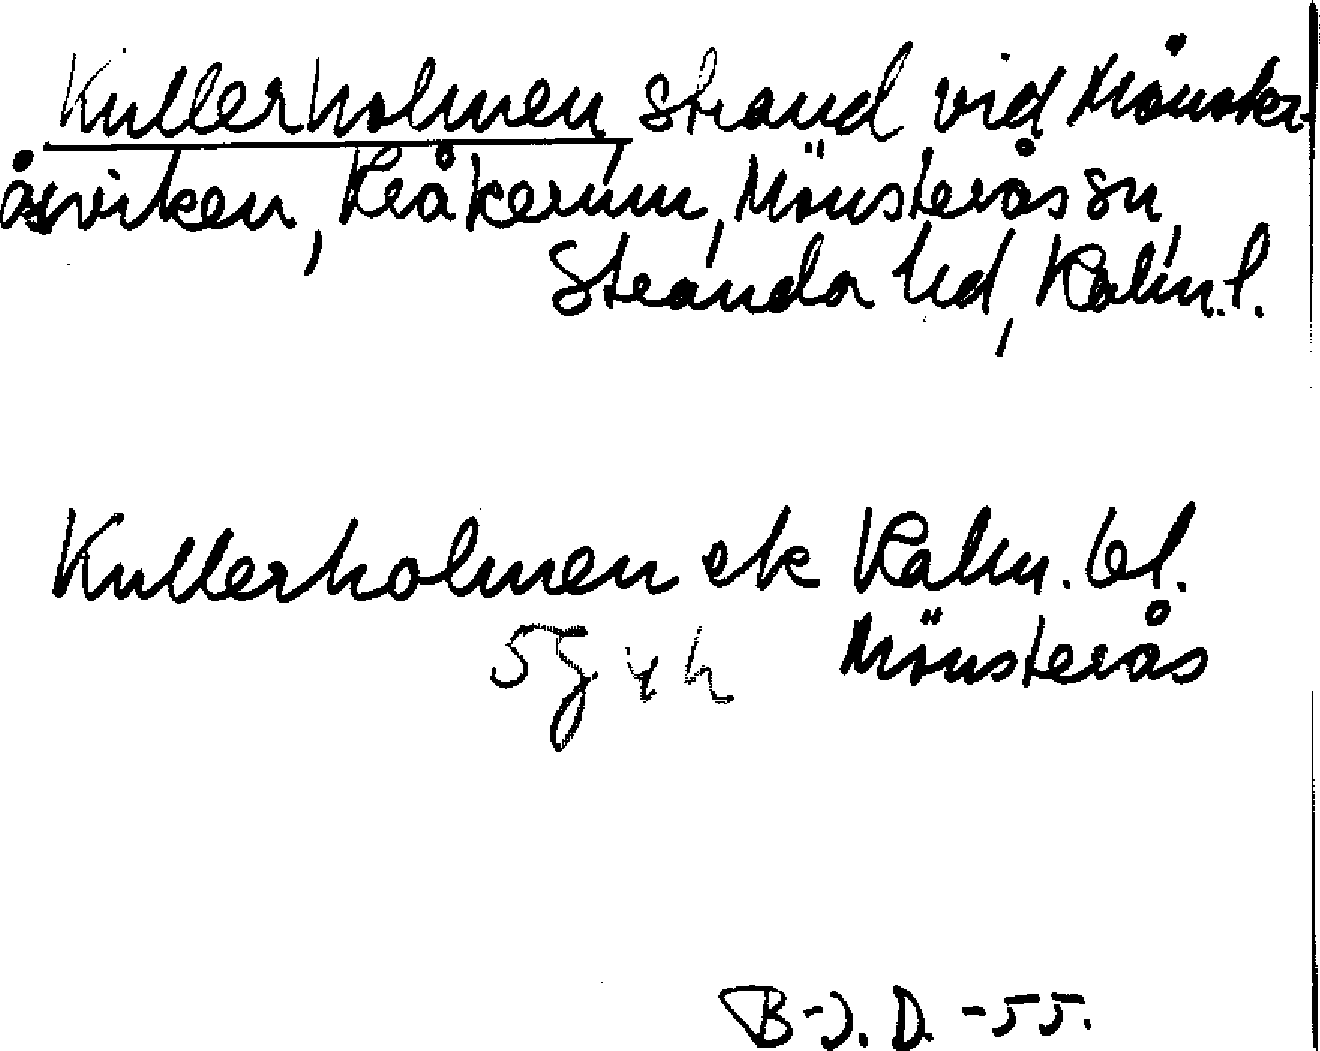 Kullerholmen, strand vid Mönster-
åsviken, Kråkerum, Mönsterås sn,
Stranda hd, Kalm. l.
Kullerholmen ek Kalm. bl.
5g 4h Mönsterås
B-J. D. -55.